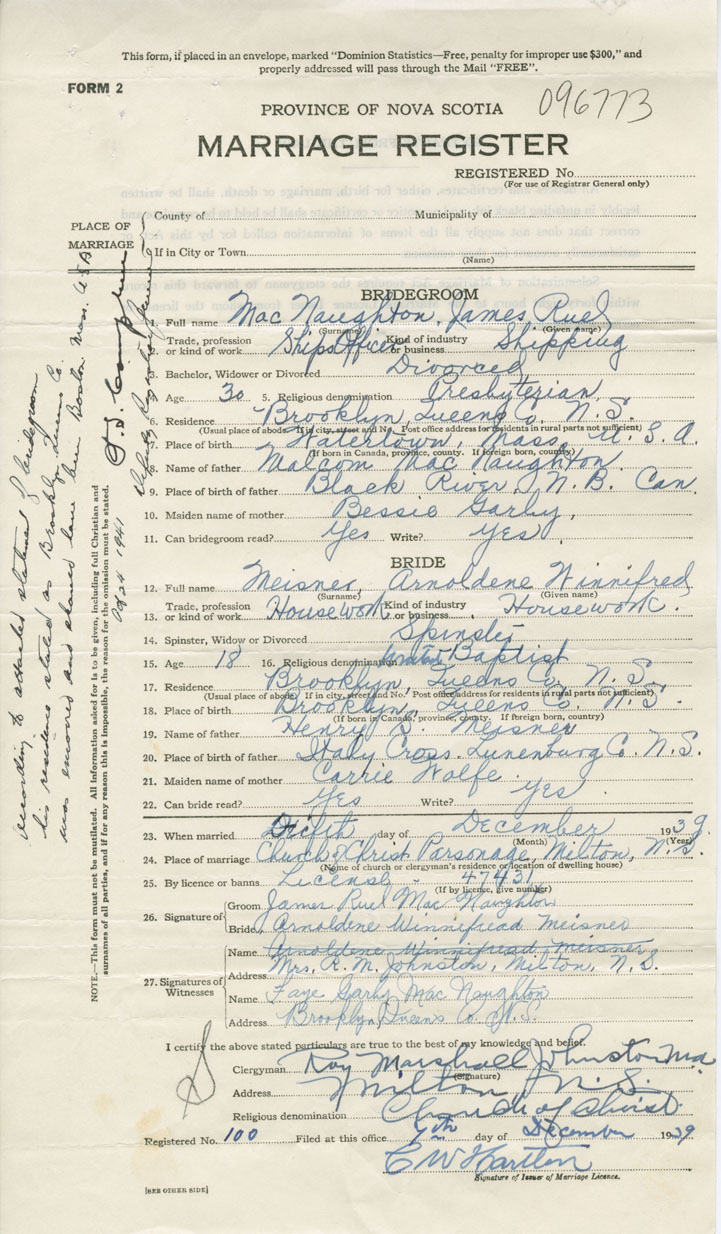 This form, if placed in an envelope, marked "Dominion Statistics—Free, penalty for improper use $300," and
properly addressed will pass through the Mail "FREE".
FORM 2
096773
PROVINCE OF NOVA SCOTIA
MARRIAGE REGISTER
REGISTERED No.
(For use of Registrar General only)
PLACE OF MARRIAGE
County of Municipality of
If in City or Town
(Name)
BRIDEGROOM
1. Full name Mac Naughton, James Ruel
(Surname) (Given name)
2. Trade, profession or kind of work Ships Officer Kind of industry or business Shipping
3. Bachelor, Widower or Divorced Divorced
4. Age 30 5. Religious denomination Presbyterian
6. Residence Brooklyn, Queens Co. N.S.
(Usual place of abode. If in city, street and No. Post office address for residents in rural parts not sufficient)
7. Place of birth Watertown, Mass, U.S.A.
(If born in Canada, province, county. If foreign born, country)
8. Name of father Malcom Mac Naughton
9. Place of birth of father Black River, N.B. Can.
10. Maiden name of mother Bessie Garby,
11. Can bridegroom read? Yes Write? Yes
BRIDE
12. Full name Meisner, Arnoldene Winnifred
(Surname) (Given name)
13. Trade, profession or kind of work Housework Kind of industry or business Housework.
14. Spinster, Widow or Divorced Spinster
15. Age 18 16. Religious denomination United Baptist
17. Residence Brooklyn, Queens Co. N.S.
(Usual place of abode. If in city, street and No. Post office address for residents in rural parts not sufficient)
18. Place of birth Brooklyn, Queens Co. N.S.
(If born in Canada, province, county. If foreign born, country)
19. Name of father Henry S. Meisner
20. Place of birth of father Italy Cross. Lunenburg Co. N.S.
21. Maiden name of mother Carrie Wolfe.
22. Can bride read? Yes Write? Yes
23. When married Fifth day of December 1939.
(Month) (Year)
24. Place of marriage Church of Christ Parsonage, Milton, N.S.
(Name of church or clergyman's residence or location of dwelling house)
25. By licence or banns License - 47431
(If by licence, give number)
26. Signature of
Groom James Ruel Mac Naughton
Bride Arnoldene Winnifread Meisner
27. Signatures of Witnesses
Name Arnoldene Winnifread Meisner
Mrs. R. M. Johnston, Milton, N.S.
Address
Name Faye Garby Mac Naughton
Address Brooklyn Queens Co. N.S.
I certify the above stated particulars are true to the best of my knowledge and belief.
Clergyman Roy Marshall Johnston
(Signature)
Address Milton N.S.
Religious denomination Church of Christ
Registered No. 100 Filed at this office 7th day of December 1939
C W Hartlen
Signature of Issuer of Marriage Licence.
[SEE OTHER SIDE]
NOTE.—This form must not be mutilated. All information asked for is to be given, including full Christian and
surnames of all parties, and if for any reason this is impossible, the reason for the omission must be stated.
According to attached statement of bridegroom
his residence stated as Brooklyn, Queens Co.
was erroneous and should have been Boston Mass. U.S.A.
Deputy Registrar General
1941